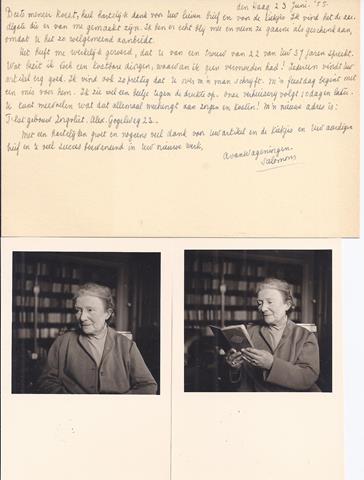 den Haag 23 Juni '55.
Beste meneer Koest, heel hartelijk dank voor Uw lieven brief en voor de kiekjes. Ik vind het de aar-
digste die er van me gemaakt zijn. Ik ben er echt blij mee en neem ze gaarne als geschenk aan,
omdat U het zo welgemeend aanbiedt.
Het heeft me werkelijk geroerd, dat U van een trouw van 22 van Uw 37 jaren spreekt.
Wat bezit ik toch een kostbare dingen, waarvan ik geen vermoeden had! Iedereen vindt Uw
artikel erg goed. Ik vind ook zo prettig dat U over m'n man schrijft. M'n feestdag begint met
een mis voor hem. Ik zie wel een beetje tegen de drukte op. Onze verhuizing volgt 10 dagen later.
U kunt meevoelen wat dat allemaal meebrengt aan zorgen en kosten! M'n nieuwe adres is:
Flat gebouw Zorgvliet. Alex. Gogelweg 23.
Met een hartelijken groet en nogeens veel dank voor Uw artikel en de kiekjes en Uw aardige
brief en veel succes in Uw nieuwe werk,
A van Wageningen
Salomons